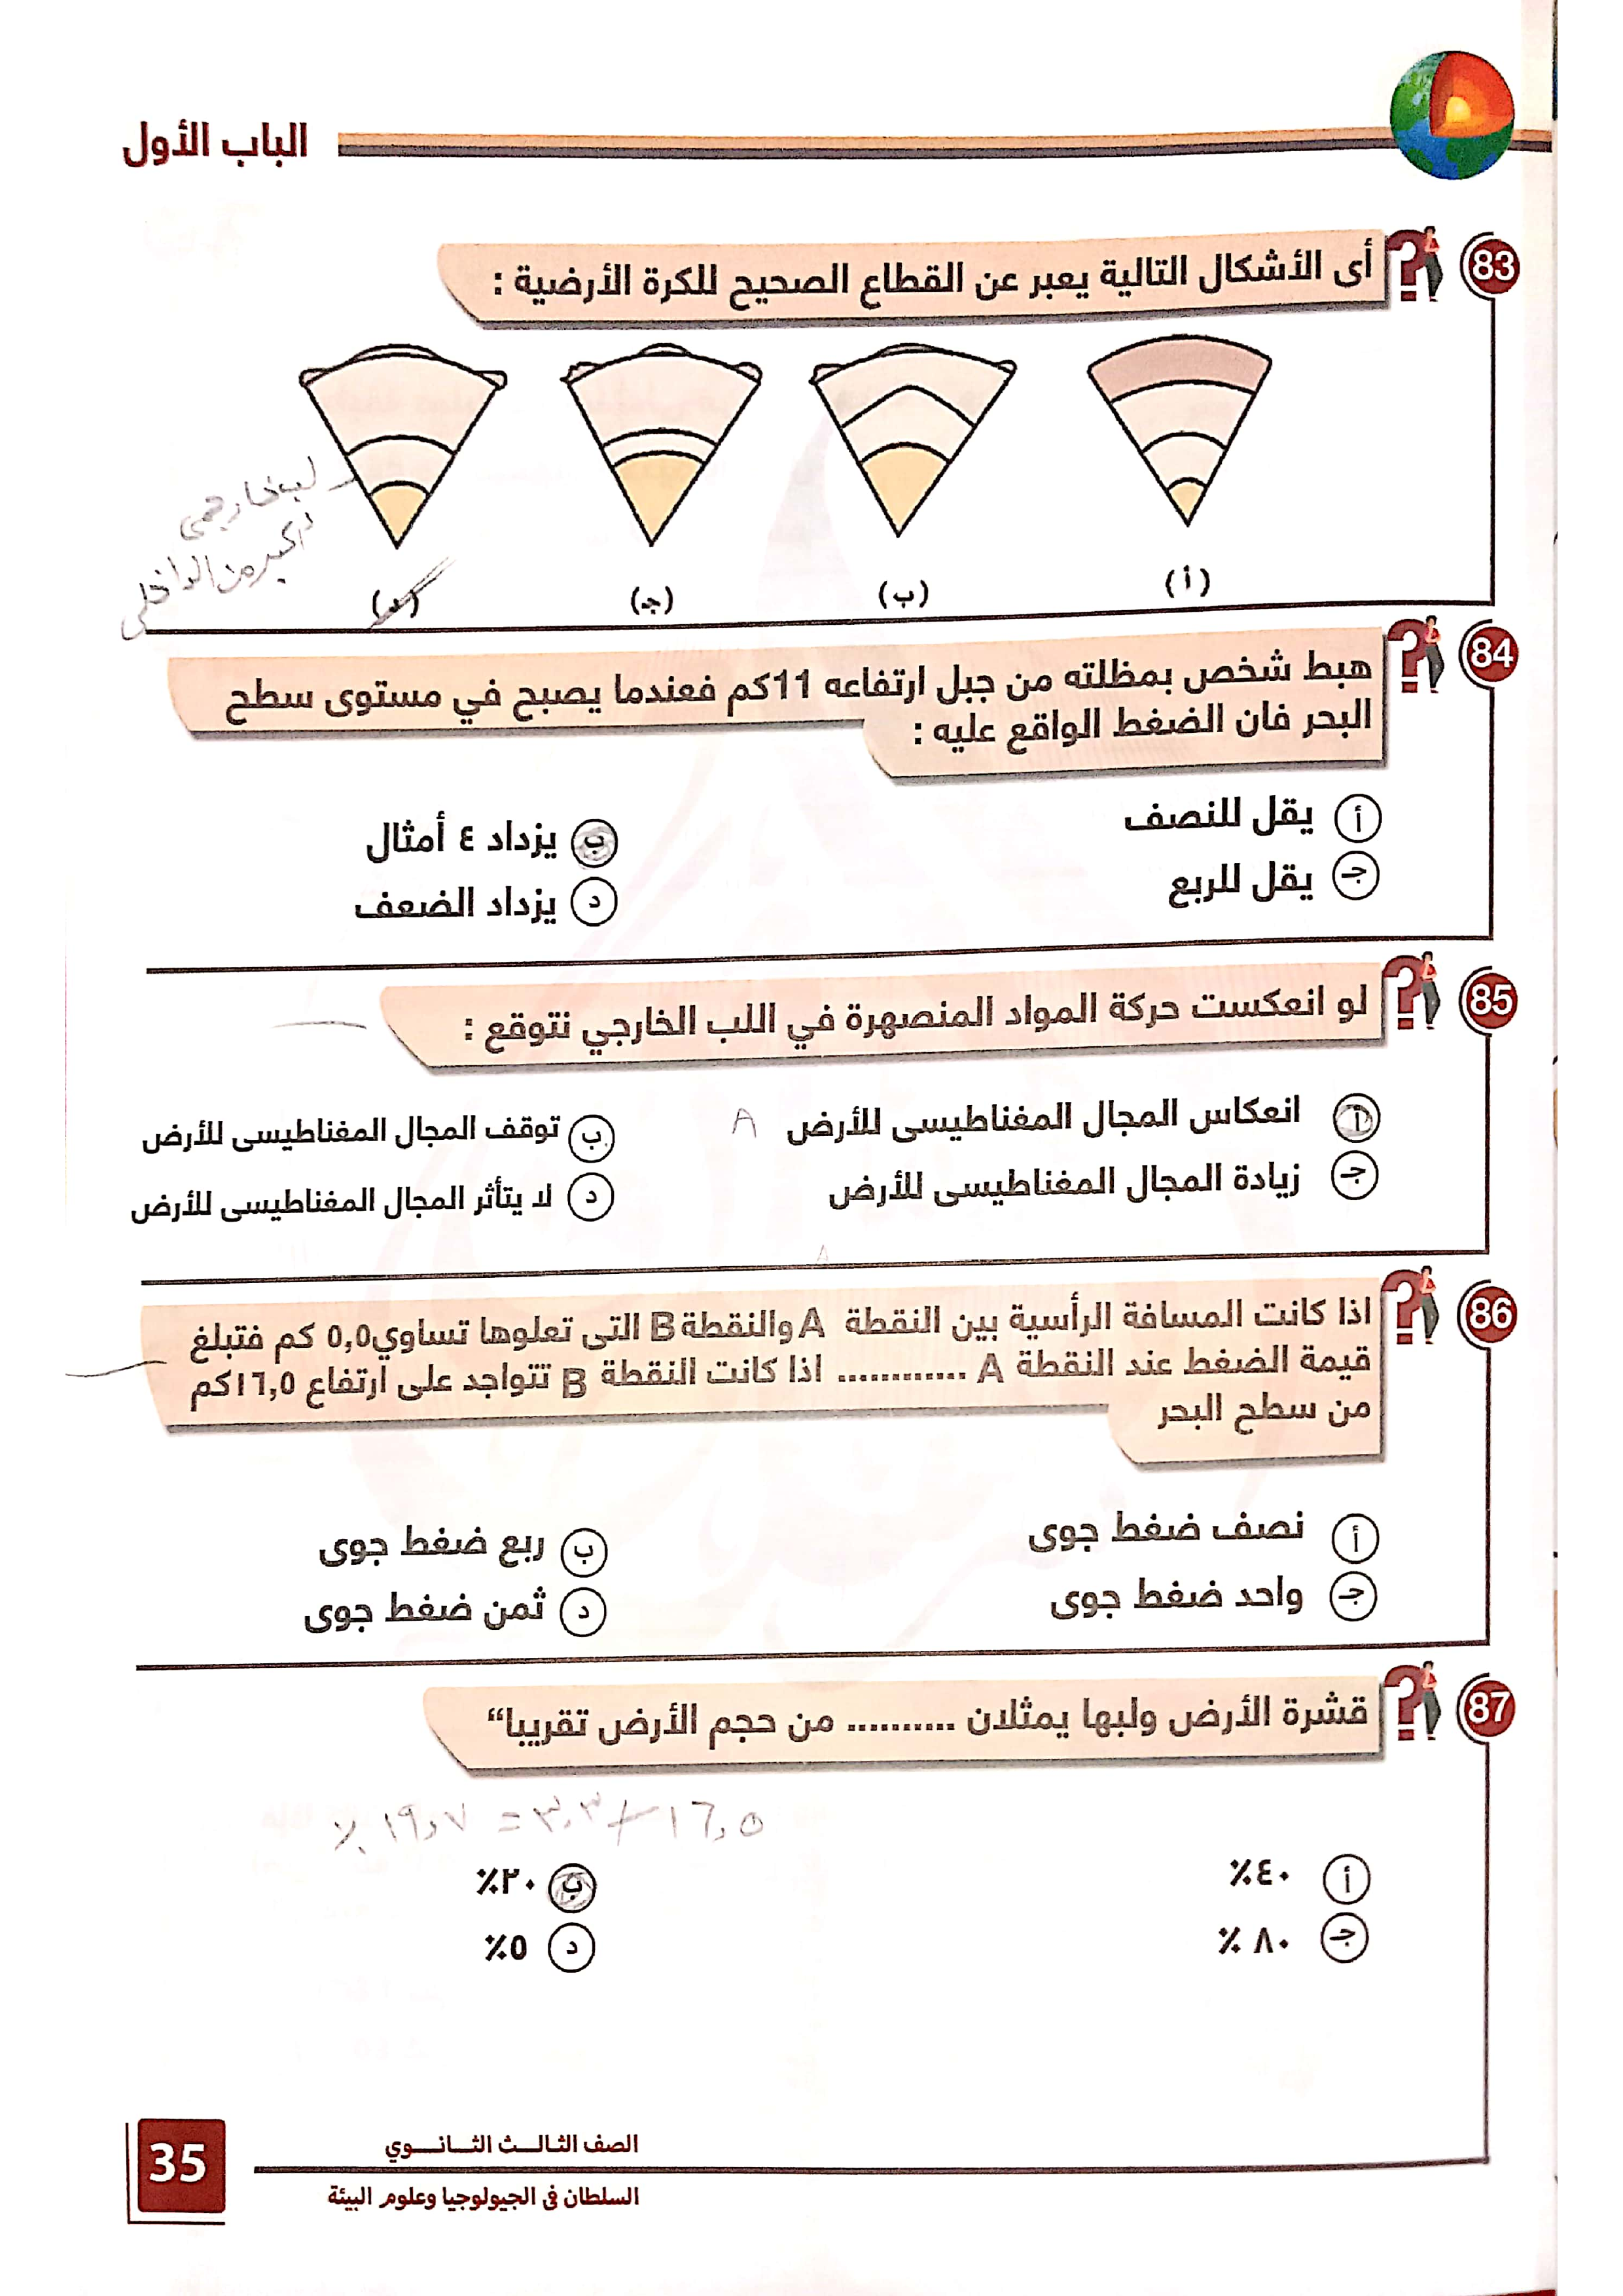 الباب الأول
83
أى الأشكال التالية يعبر عن القطاع الصحيح للكرة الأرضية :
لب خارجي
أكبر من الداخلي
(أ)
(ب)
(جـ)
(د)
84
هبط شخص بمظلته من جبل ارتفاعه 11كم فعندما يصبح في مستوى سطح
البحر فان الضغط الواقع عليه :
أ يقل للنصف
ب يزداد ٤ أمثال
جـ يقل للربع
د يزداد الضعف
85
لو انعكست حركة المواد المنصهرة في اللب الخارجي نتوقع :
أ انعكاس المجال المغناطيسى للأرض
A
ب توقف المجال المغناطيسى للأرض
جـ زيادة المجال المغناطيسى للأرض
د لا يتأثر المجال المغناطيسى للأرض
86
اذا كانت المسافة الرأسية بين النقطة A والنقطة B التى تعلوها تساوي٥,٥ كم فتبلغ
قيمة الضغط عند النقطة A ............ اذا كانت النقطة B تتواجد على ارتفاع ١٦,٥كم
من سطح البحر
أ نصف ضغط جوى
ب ربع ضغط جوى
جـ واحد ضغط جوى
د ثمن ضغط جوى
87
قشرة الأرض ولبها يمثلان .......... من حجم الأرض تقريبا“
١٦,٥ + ٣,٣ = ١٩,٧ ٪
أ ٤٠٪
ب ٢٠٪
جـ ٨٠ ٪
د ٥٪
الصف الثالـــث الثـــانـــوي
السلطان فى الجيولوجيا وعلوم البيئة
35